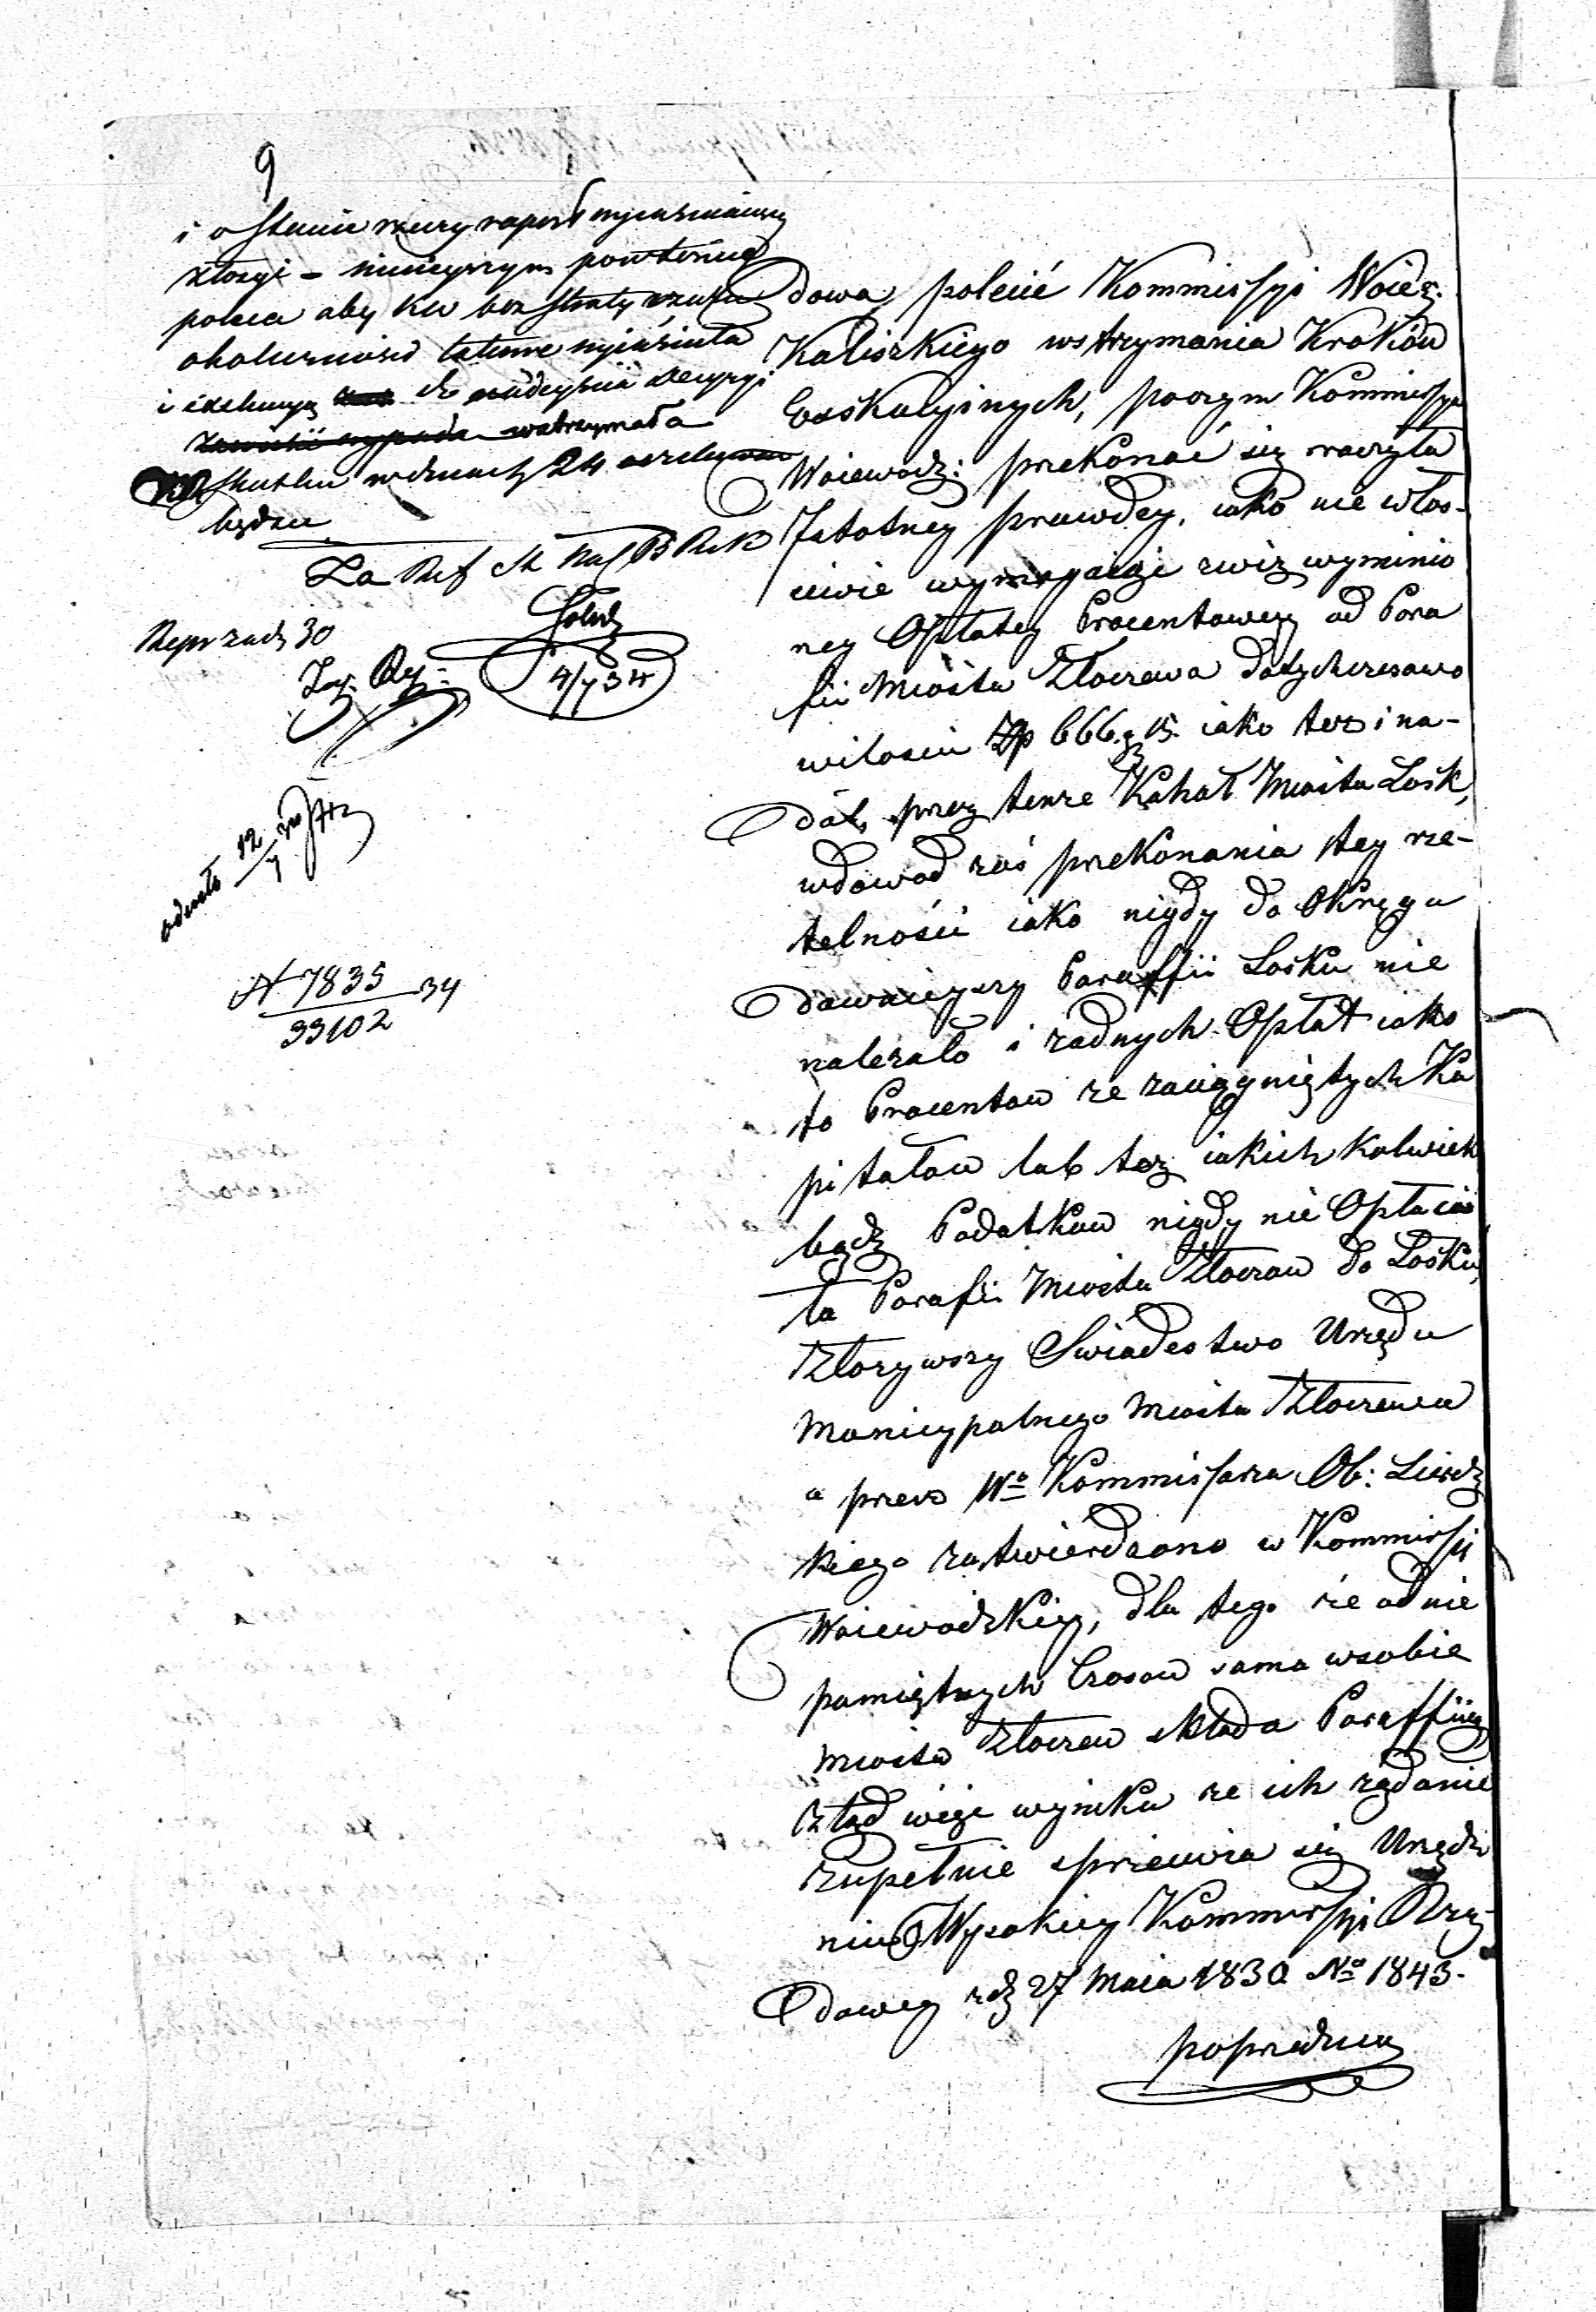 9
i o stanie rzeczy raport wyjaśniaiący
złożyć – ninieyszym powtórnie
poleca aby KW bez straty czasu
okoliczności tutowe wyiaśniła
i exekucyą do nadeyścia decyzyi
wstrzymała
skutku w dniach 24 oczekiwać
będzie
Za Ref
Repr zach 30
4/7 34
odeszło 12/7 34
N 7835 34
33102
dowa, polecić Kommissyi Woiew.
Kaliskiego wstrzymania Kroków
Exekucyinych, poczym Kommissya
Woiewodz: przekonać się raczyła
Istotney prawdzy, iako nie włas-
ciwie wymagaiąc zwiż wyminio
ney Opłatey Procentowey od Para
fii Miasta Złoczewa dotychczasowo
witości Zp 666 g 15. iako też i na-
dal, przez tenże Kahał Miasta Łask,
wdowod zaś przekonania tey rze-
telności iako nigdy do Okręgu
dawnieyszy Paraffii Łasku nie
należało i żadnych Opłat iako
to Procentow ze zaciągniętych Ka
pitałow lub też iakich kolwiek
bądź Podatkow nigdy nie Opłacia
ła Parafii Miasta Złoczew do Łasku,
Złożywszy Swiadestwo Urzędu
Municypalnego Miasta Złoczewa
a przez Wo Kommissarza Ob: Sieradz
kiego zatwierdzono w Kommissyi
Woiewodzkiey, dla tego że od nie
pamiętnych Czasow sama wsobie
Miasta Złoczew składa Paraffiią,
ztąd więc wynika że ich żądanie
zupełnie sprzeciwia się Urządze
niu Wysokiey Kommissyi Rzą-
dowey z dz 27 Maia 1830 No 1843.
poprzednią